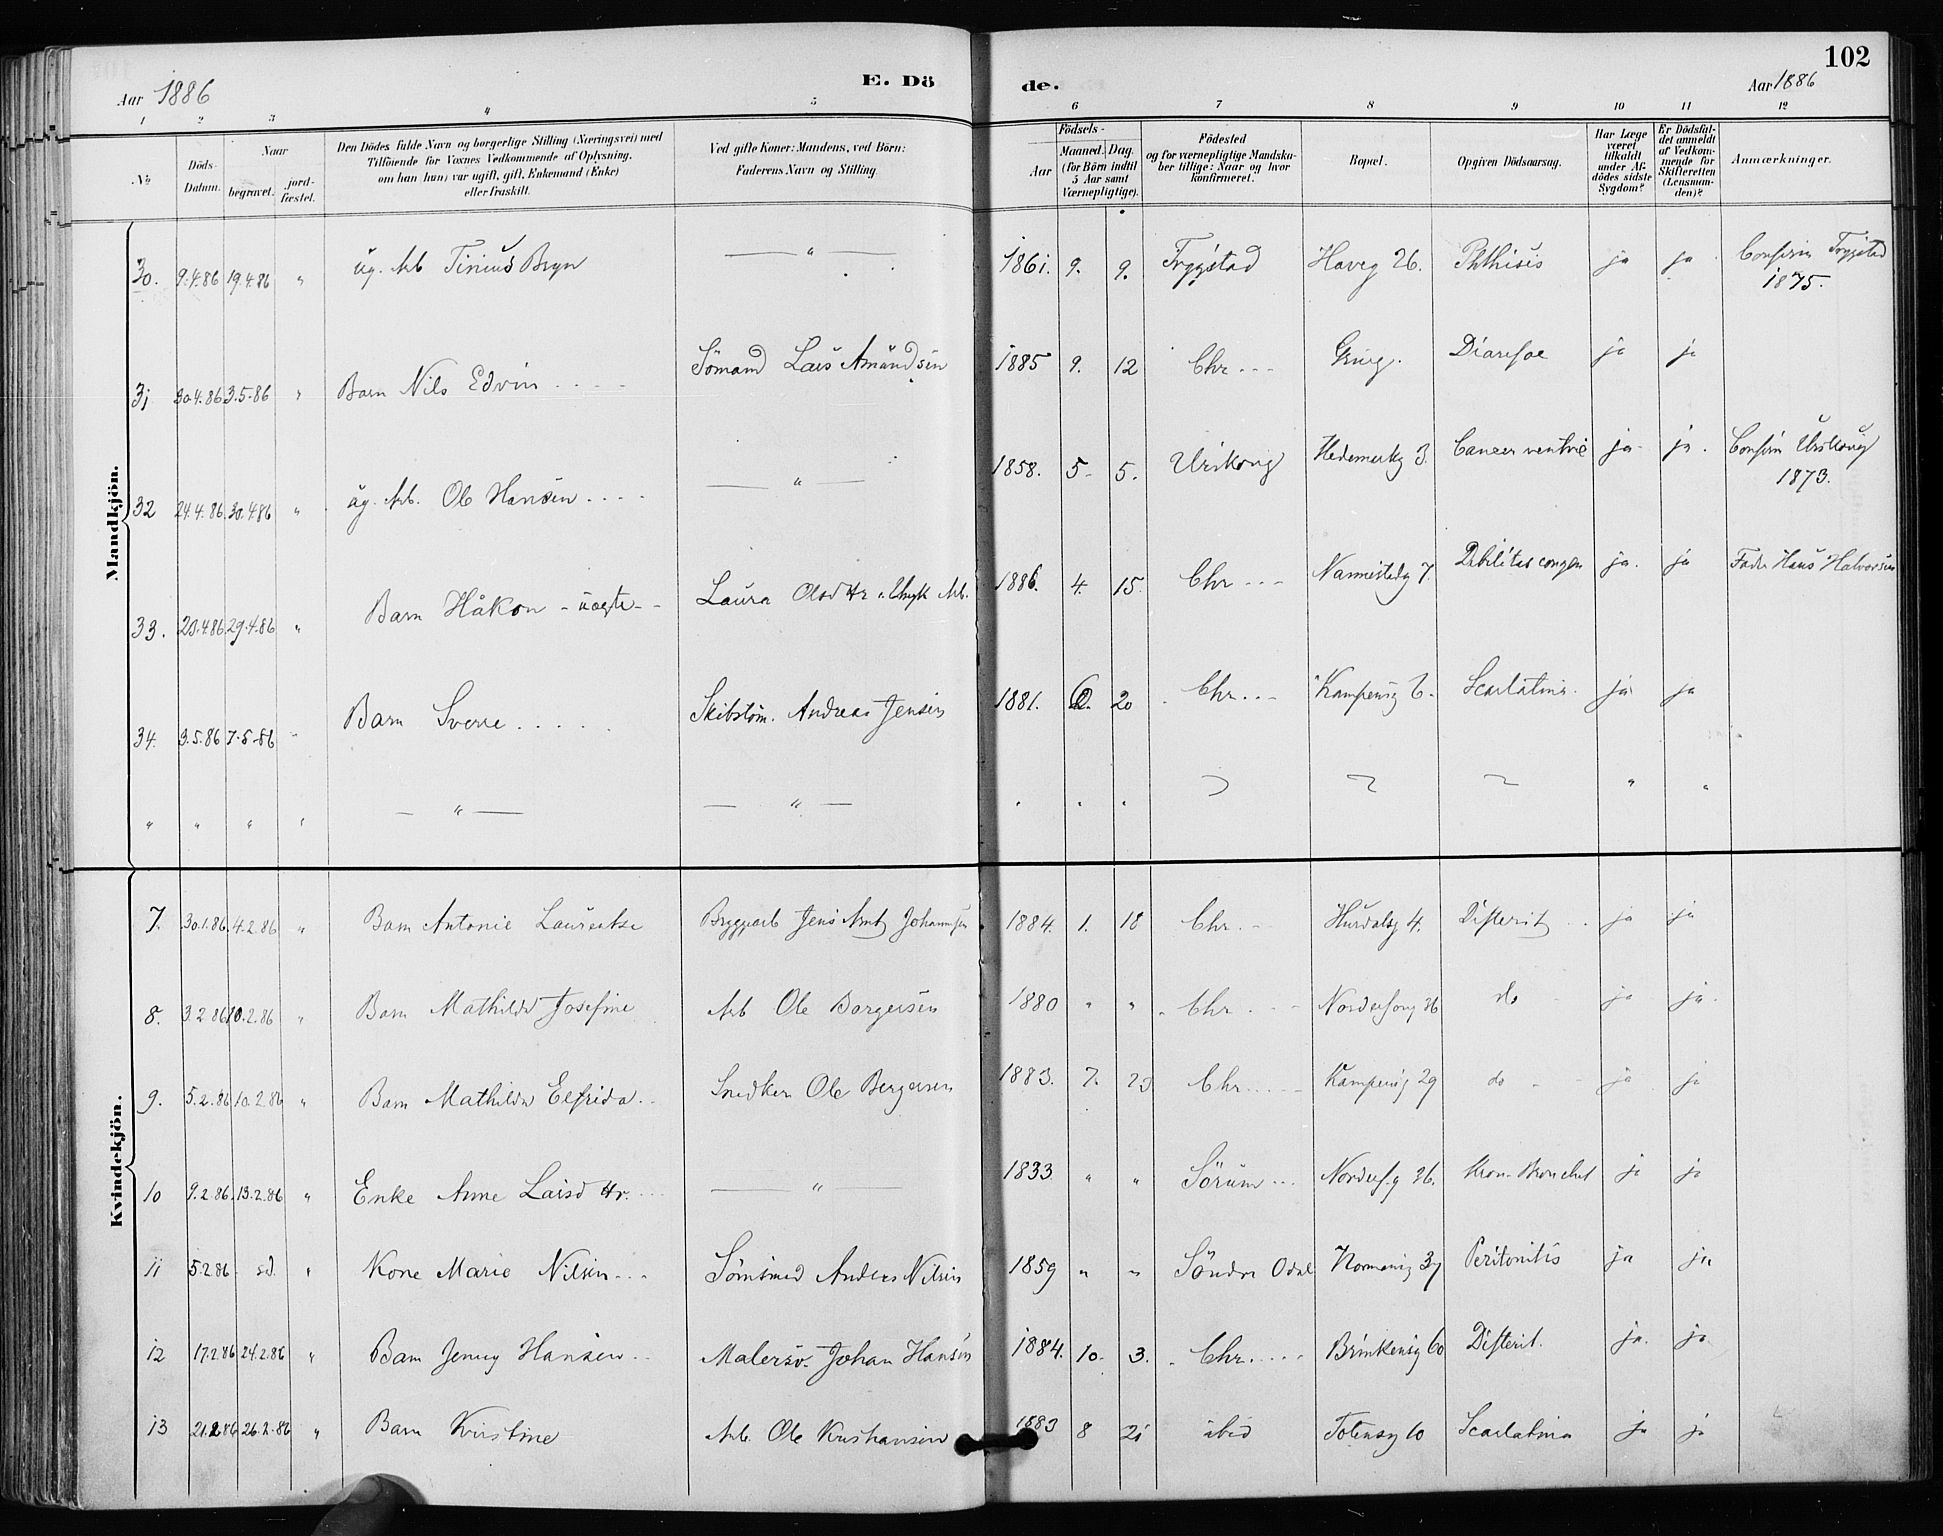 102
Aar 1886
E. Dö
de.
Aar 1886
1 2 3 4 5 6 7 8 9 10 11 12
No
Döds-
Datum.
Naar
begravet.
jord-
fæstet.
Den Dödes fulde Navn og borgerlige Stilling (Næringsvei) med
Tilföiende for Voxnes Vedkommende af Oplysning,
om han (hun) var ugift, gift, Enkemand (Enke)
eller fraskilt.
Ved gifte Koner: Mandens, ved Börn:
Faderens Navn og Stilling.
Födsels-
Aar
Maaned. Dag.
(for Börn indtil
5 Aar samt
Værnepligtige).
Födested
og for værnepligtige Mandska-
ber tillige: Naar og hvor
konfirmeret.
Bopæl.
Opgiven Dödsaarsag.
Har Læge
været
tilkaldt
under Af-
dödes sidste
Sygdom?
Er Dödsfal-
det anmeldt
af Vedkom-
mende for
Skifteretten
(Lensman-
den)?
Anmærkninger.
Mandkjön.
30. 9.4.86 19.4.86 " ug. Arb Tinius Bryn — " — 1861. 9. 9. Trygstad Haveg 26. Phthisis ja ja Confirm Trygstad
1875.
31 30.4.86 3.5.86 " Barn Nils Edvin Sömand Lars Amundsen 1885 9. 12 Chr. Diarrhoe ja ja
32 24.4.86 30.4.86 " ug. Arb. Ole Hansen — " — 1858. 5. 5. Urskoug Hedemarkg 3. Cancer ventric ja ja. Confirm Urskoug
1873.
33. 23.4.86 29.4.86 " Barn Håkon - uægte - Laura Olsdtr. Arb. 1886. 4. 15. Chr Nannestadg 7. Debilitas congen ja. ja Fader Hans Halvorsen
34. 3.5.86 7.5.86 " Barn Sverre Skibstöm. Andreas Jensen 1881. 20 Chr. Kampensg 6. Scarlatina. ja ja
" " " " — " — — " — " " " " "
Kvindekjön.
7. 30.1.86 4.2.86 " Barn Antonie Lauentse Bryggarb Jens Arnt Johannsen 1884. 1. 18 Chr. Hurdalsg 4. Difterit ja ja
8. 3.2.86 10.2.86 " Barn Mathilde Josefine Arb Ole Borgersen 1880 " " Chr. 36 do ja ja.
9. 5.2.86 10.2.86 " Barn Mathilde Elfrida Snedker Ole Bergersen 1883. 7. 23 Chr. Kampensg 29 do ja ja
10 9.2.86. 13.2.86 " Enke Anne Larsdtr. — " — 1833. " " Sörum Kron. Bronchit ja ja
11 5.2.86 sd. " Kone Marie Nilsen Sömsmed Anders Nilsen 1859 " " Söndre Odal Normansg 37 Peritonitis ja ja
12 17.2.86 24.2.86 " Barn Jenny Hansen Malersv. Johan Hansen 1884. 10. 3. Chr. Brinkensg 60 Difterit. ja. ja
13 21.2.86 26.2.86 " Barn Kristine Arb. Ole Kristiansen 1883 8 21 ibid Totensg 10 Scarlatina ja ja